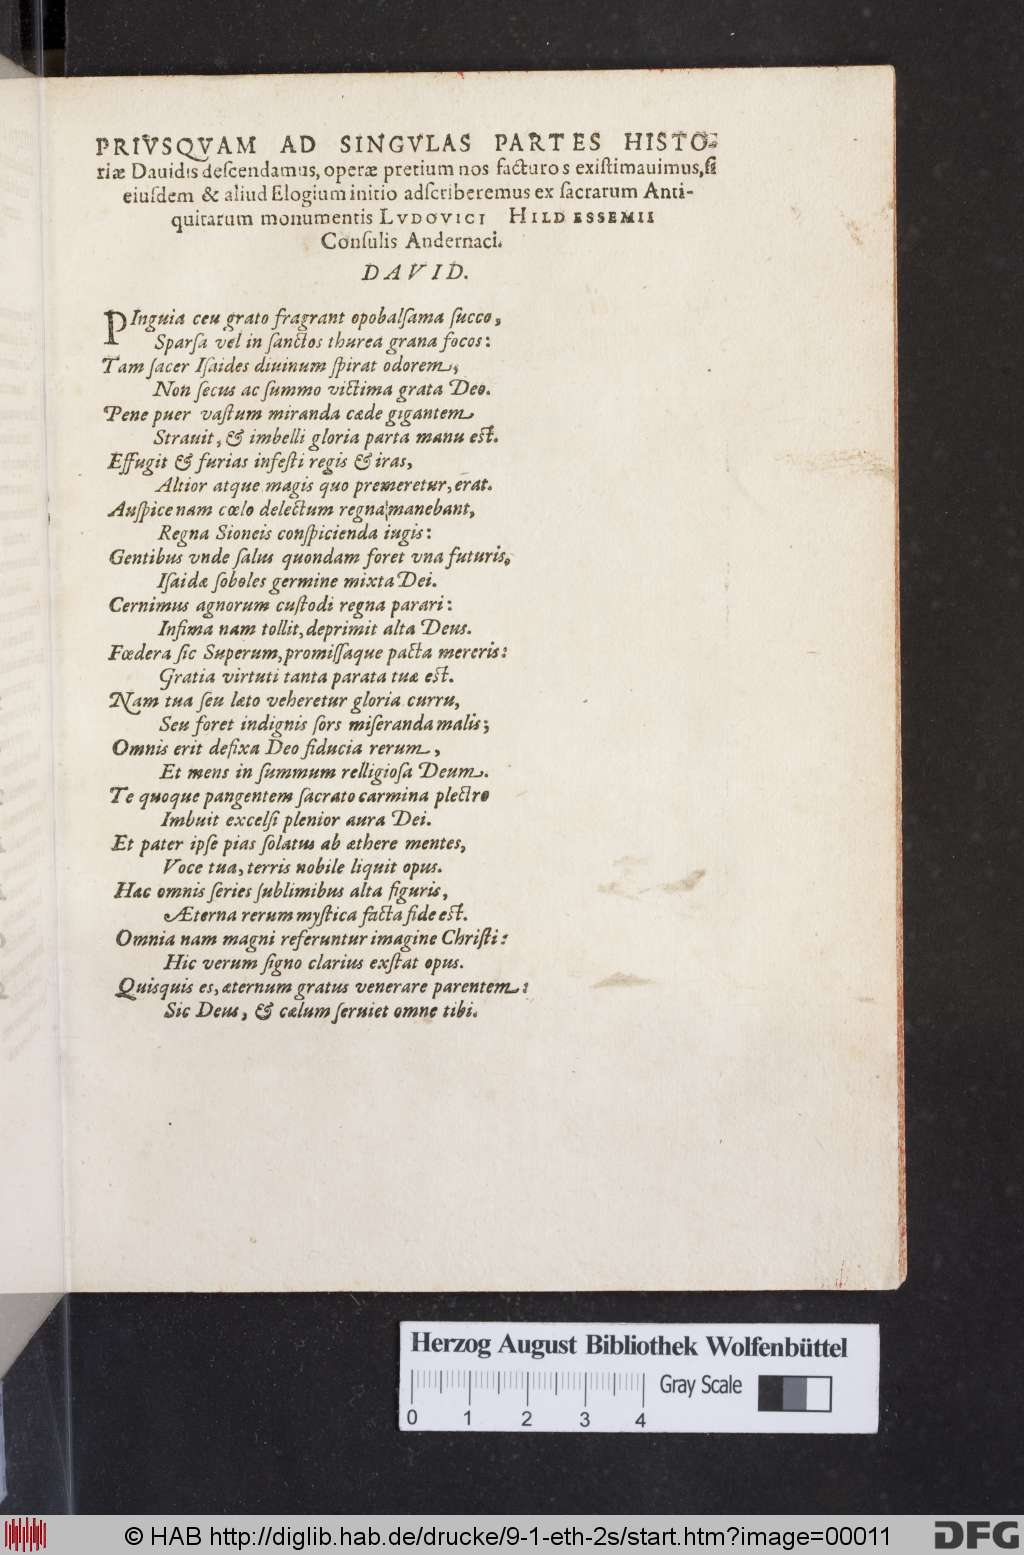 PRIVSQVAM AD SINGVLAS PARTES HISTO-
riæ Dauidis deſcendamus, operæ pretium nos facturos exiſtimauimus, ſi
eiuſdem & aliud Elogium initio adſcriberemus ex ſacrarum Anti-
quitatum monumentis LVDOVICI HILDESSEMII
Conſulis Andernaci.
DAVID.
PInguia ceu grato fragrant opobalſama ſucco,
Sparſa vel in ſanctos thurea grana focos:
Tam ſacer Iſaides diuinum ſpirat odorem,
Non ſecus ac ſummo victima grata Deo.
Pene puer vaſtum miranda cæde gigantem
Strauit, & imbelli gloria parta manu eſt.
Effugit & furias infeſti regis & iras,
Altior atque magis quo premeretur, erat.
Auſpice nam cœlo delectum regna manebant,
Regna Sioneis conſpicienda iugis:
Gentibus vnde ſalus quondam foret vna futuris,
Iſaidæ ſoboles germine mixta Dei.
Cernimus agnorum cuſtodi regna parari:
Infima nam tollit, deprimit alta Deus.
Fœdera ſic Superum, promiſſaque pacta mereris:
Gratia virtuti tanta parata tuæ eſt.
Nam tua ſeu læto veheretur gloria curru,
Seu foret indignis ſors miſeranda malis;
Omnis erit defixa Deo fiducia rerum,
Et mens in ſummum relligioſa Deum.
Te quoque pangentem ſacrato carmina plectro
Imbuit excelſi plenior aura Dei.
Et pater ipſe pias ſolatus ab æthere mentes,
Voce tua, terris nobile liquit opus.
Hac omnis ſeries ſublimibus alta figuris,
Æterna rerum myſtica facta fide eſt.
Omnia nam magni referuntur imagine Chriſti:
Hic verum ſigno clarius exſtat opus.
Quisquis es, æternum gratus venerare parentem:
Sic Deus, & cælum ſeruiet omne tibi.
Herzog August Bibliothek Wolfenbüttel
Gray Scale
0 1 2 3 4
© HAB http://diglib.hab.de/drucke/9-1-eth-2s/start.htm?image=00011
DFG